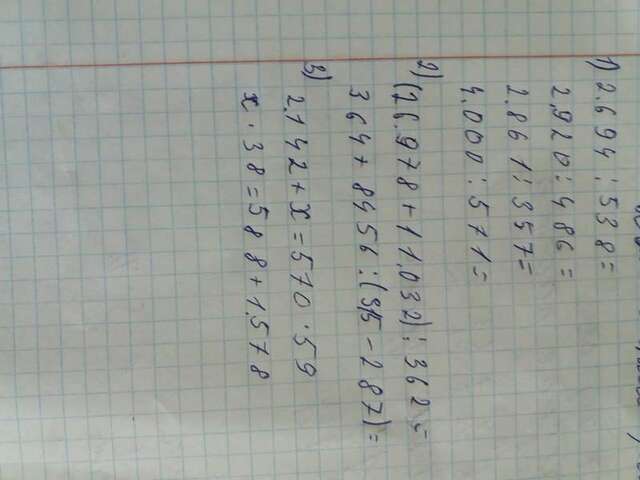 1) 2.694 : 538 =
2.920 : 486 =
2.861 : 357 =
4.000 : 571 =
2) (26.978 + 11.032) : 362 =
364 + 8456 : ( - 287) =
3) 2.142 + x = 570 · 59
x · 38 = 588 + 1.578